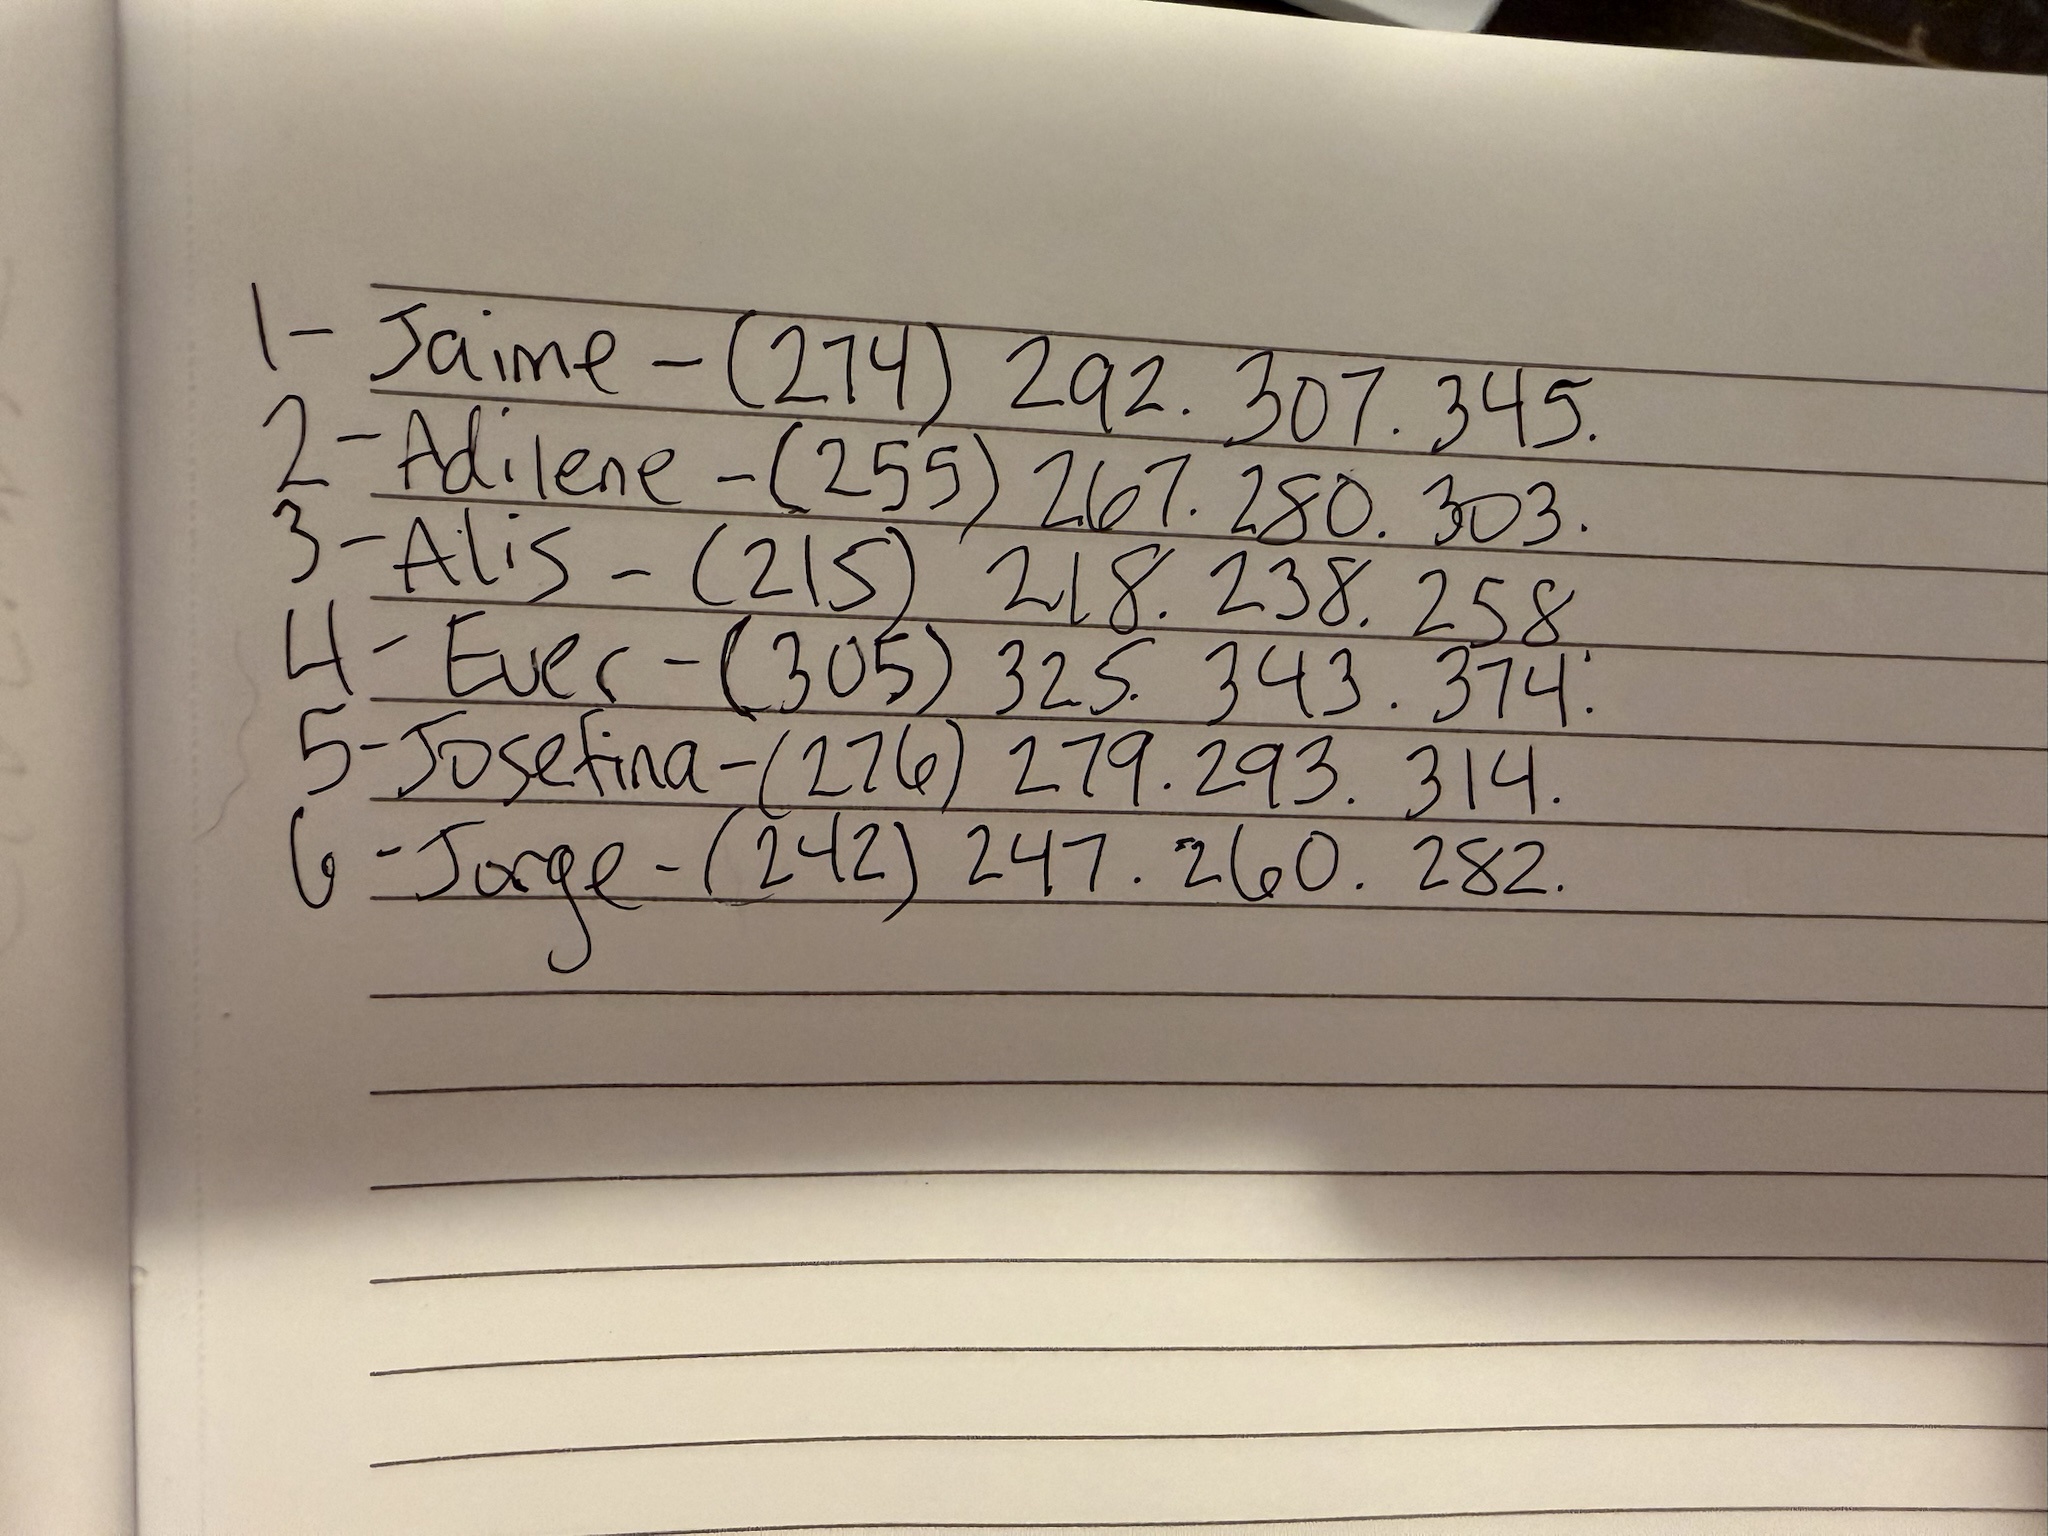 1- Jaime - (274) 292. 307. 345.
2- Adilene - (255) 267. 280. 303.
3- Alis - (215) 218. 238. 258
4- Ever - (305) 325. 343. 374.
5- Josefina - (276) 279. 293. 314.
6- Jorge - (242) 247. 260. 282.